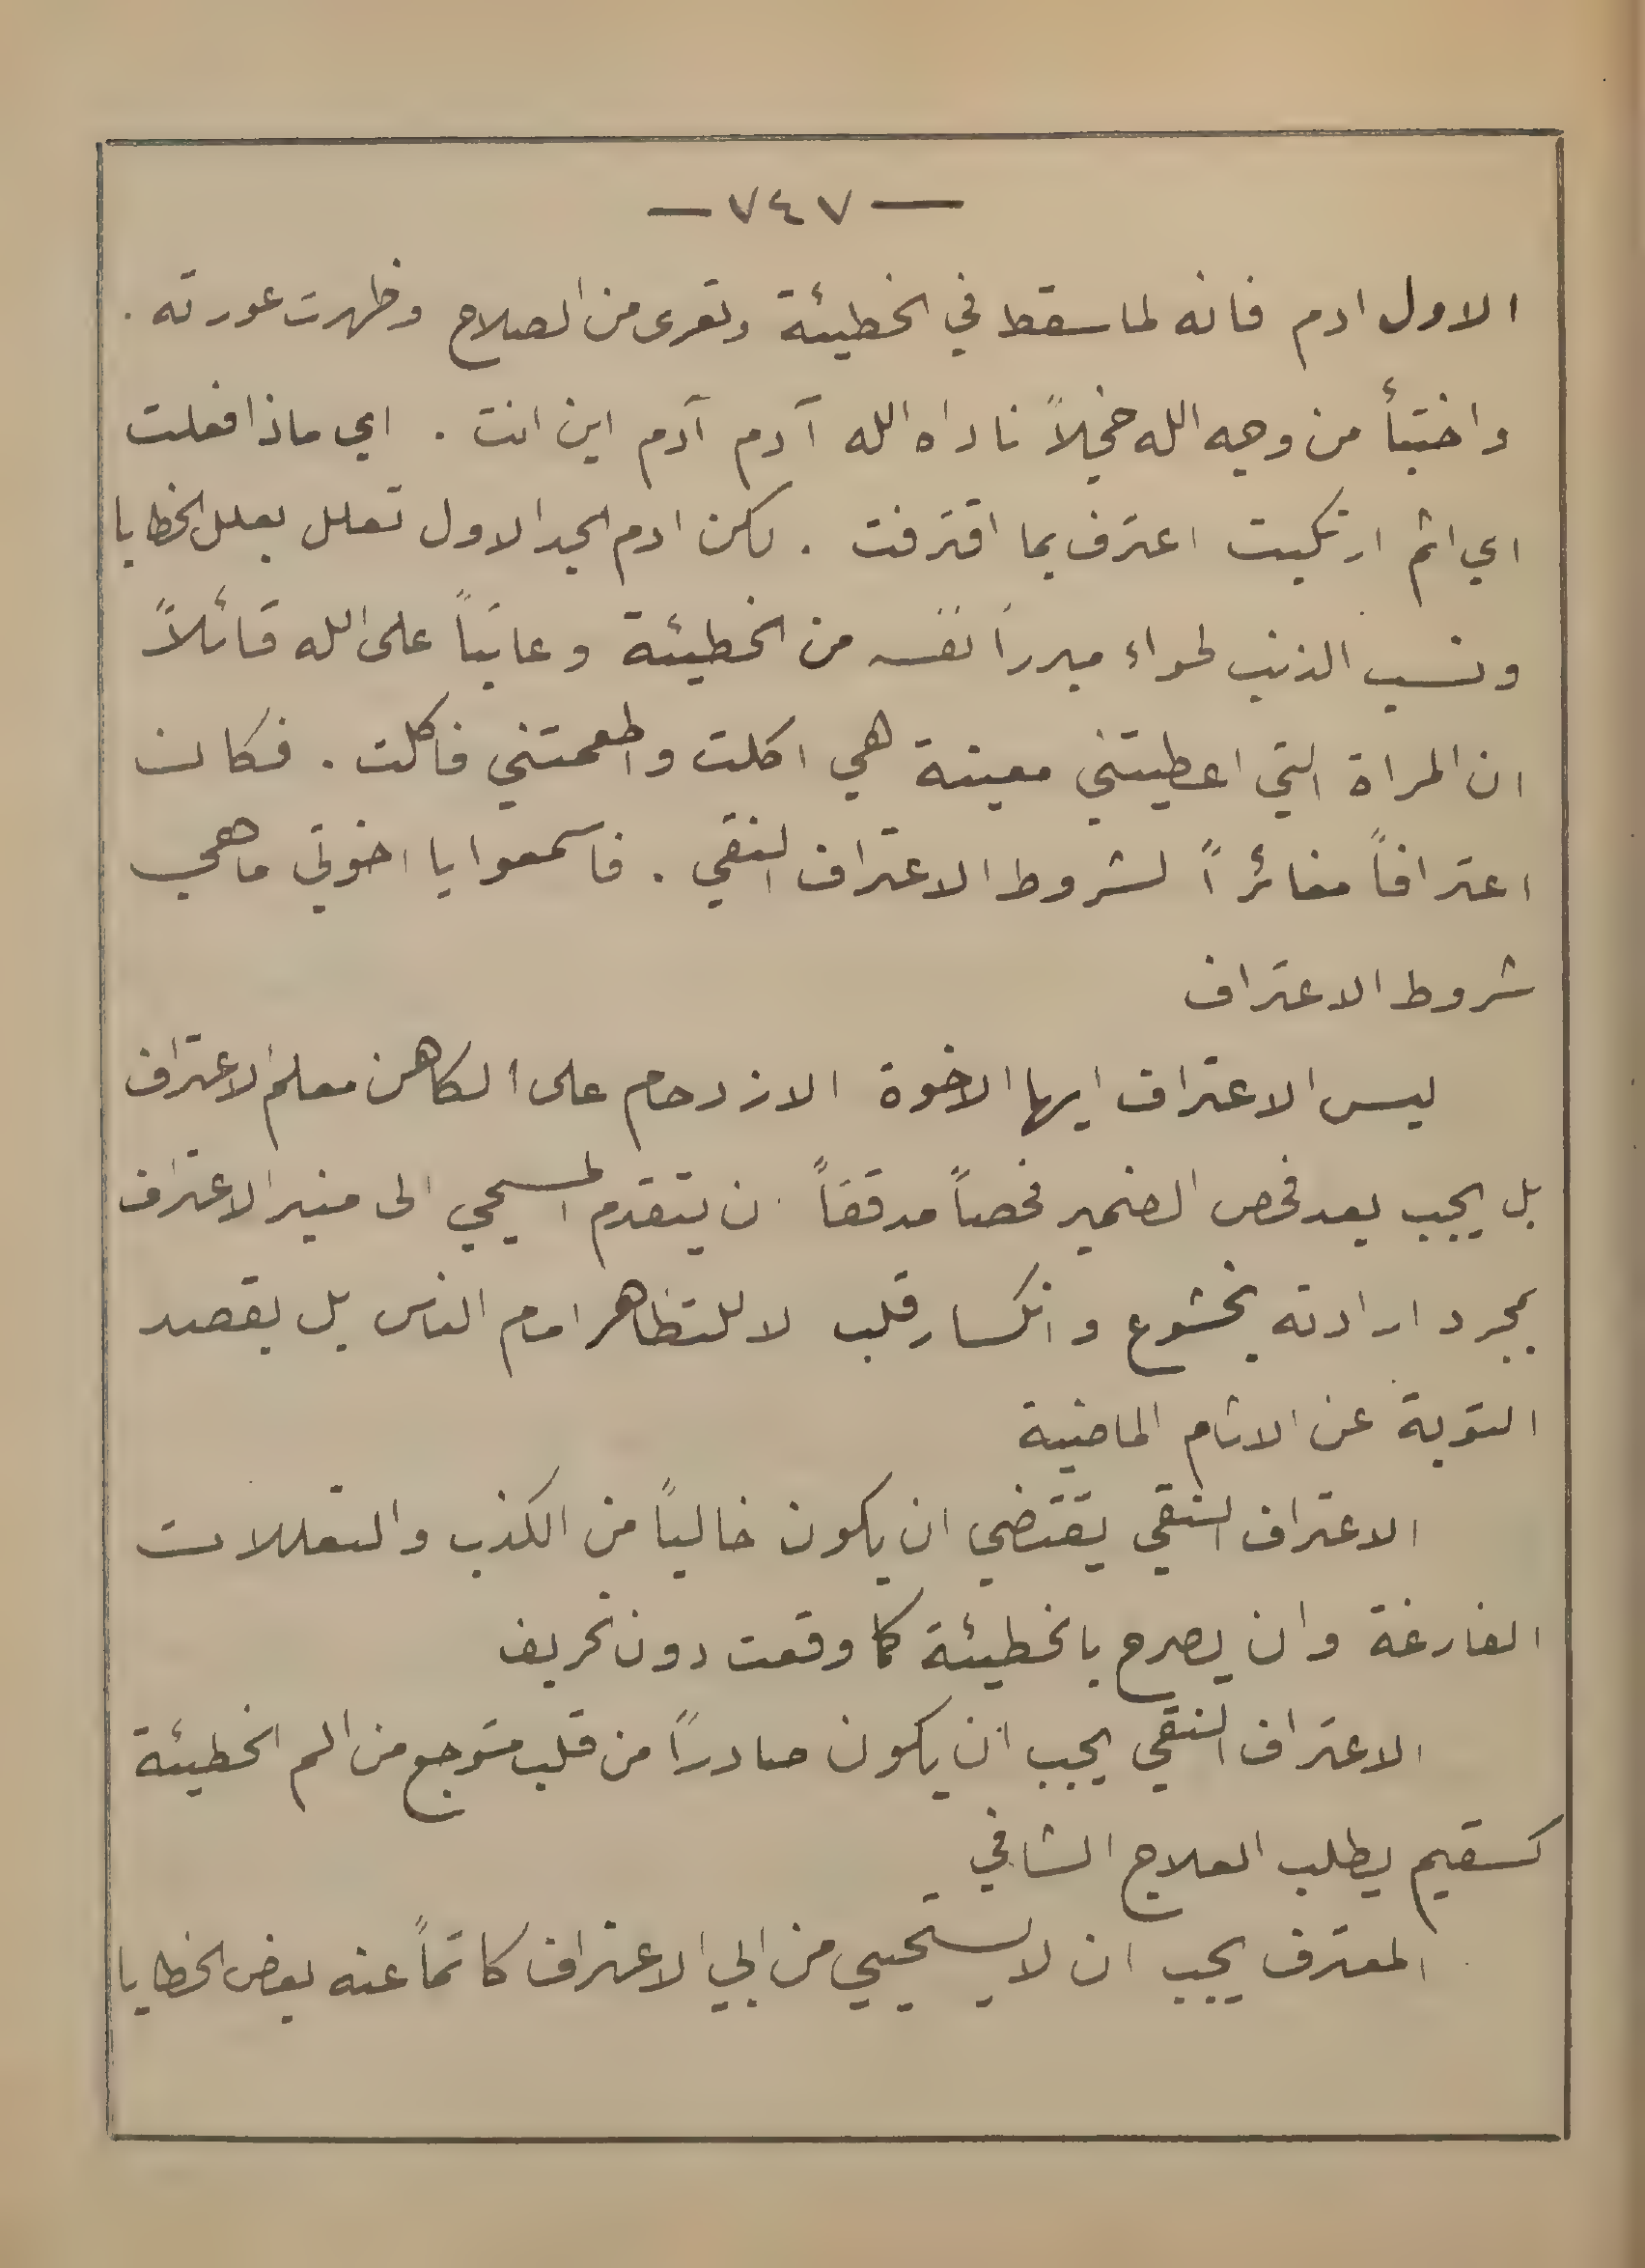 — ٧٤٧ —
الاول ادم فانه لما سقط في الخطيئة وتعرى من الصلاح وظهرت عورته .
واختبأ من وجه الله خجلاً ناداه الله آدم آدم اين انت . اي ماذا فعلت
اي اثم ارتكبت اعترف بما اقترفت . لكن ادم الجد الاول تعلل بعلل الخطايا
ونسب الذنب لحواء مبرراً نفسه من الخطيئة وعاتباً على الله قائلاً
ان المراة التي اعطيتني معينة هي اكلت واطعمتني فاكلت . فكان
اعترافاً مغائراً لشروط الاعتراف النقي . فاسمعوا يا اخوتي ما هي
شروط الاعتراف
ليس الاعتراف ايها الاخوة الازدحام على الكاهن معلم الاعتراف
بل يجب بعد فحص الضمير فحصاً مدققاً ان يتقدم المسيحي الى منبر الاعتراف
بمجرد ارادته بخشوع وانكسار قلب لا للتظاهر امام الناس بل بقصد
التوبة عن الاثام الماضية
الاعتراف النقي يقتضي ان يكون خالياً من الكذب والتعللات
الفارغة وان يصرح بالخطيئة كما وقعت دون تحريف
الاعتراف النقي يجب ان يكون صادراً من قلب متوجع من الم الخطيئة
كسقيم يطلب العلاج الشافي
المعترف يجب ان لا يستحيي من ابي الاعتراف كاتماً عنه بعض الخطايا